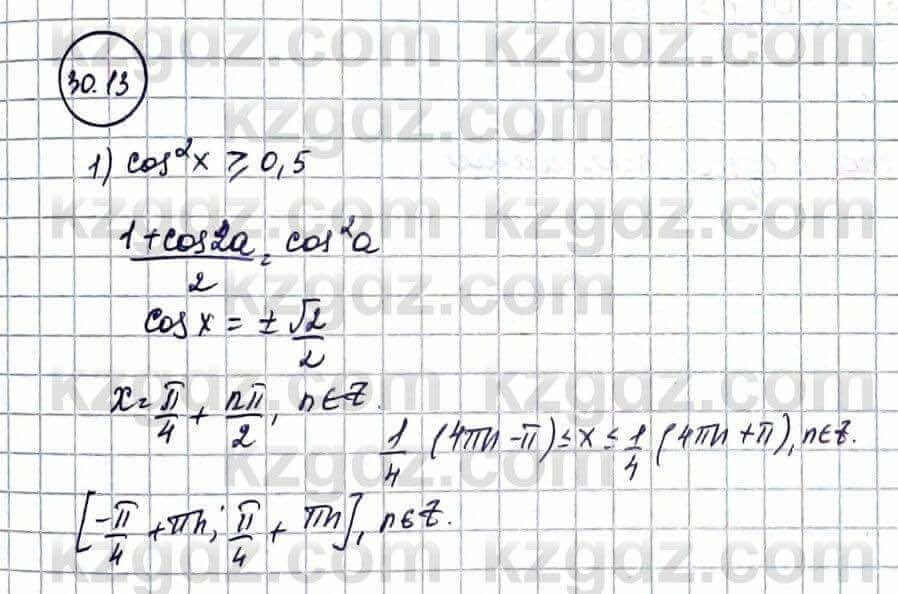 30.13
1) cos²x ⩾ 0,5
(1+cos2a)/2 = cos²a
cos x = ± √2/2
x = π/4 + nπ/2, n∈Z.
1/4 (4πn-π) ≤ x ≤ 1/4 (4πn+π), n∈Z.
[-π/4 + πn; π/4 + πn], n∈Z.
kzgdz.com
kzgdz.com
kzgdz.com
kzgdz.com
kzgdz.com
kzgdz.com
kzgdz.com
kzgdz.com
kzgdz.com